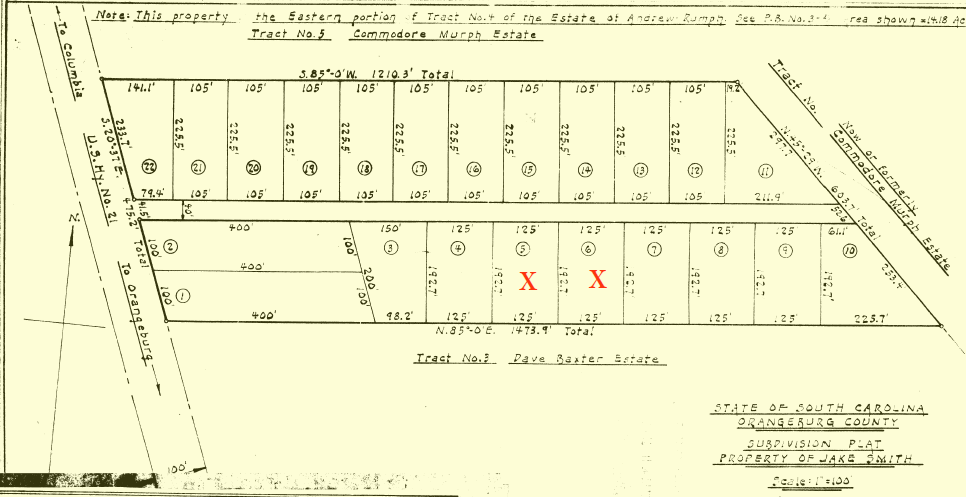 Note: This property the Eastern portion of Tract No.4 of the Estate of Andrew Rumph. See P.B. No.3- rea shown =14.18 Ac
Tract No.5 Commodore Murph Estate
To Columbia
S.85°-0'W. 1210.3' Total
141.1' 105' 105' 105' 105' 105' 105' 105' 105' 105' 105' 19.2'
Tract No.
Now or formerly
Commodore Murph Estate
233.7'
S.20°-37'E.
U.S. Hy. No. 21
225.5' 225.5' 225.5' 225.5' 225.5' 225.5' 225.5' 225.5' 225.5' 225.5' 225.5'
N.45°-29'W.
297.7'
22 21 20 19 18 17 16 15 14 13 12 11
79.4' 105' 105' 105' 105' 105' 105' 105' 105' 105' 105' 211.9'
603.7' Total
475.2' Total
41.5'
40'
52.6
N.
400' 150' 125' 125' 125' 125' 125' 125' 61.1'
100' 2 100' 3 4 5 6 7 8 9 10
253.4
400'
200'
192.7' 192.7' 192.7' 192.7' 192.7' 192.7' 192.7'
X X
To Orangeburg
100' 1 100'
400' 98.2' 125' 125' 125' 125' 125' 125' 225.7'
N.85°-0'E. 1473.9' Total
Tract No.3 Dave Baxter Estate
STATE OF SOUTH CAROLINA
ORANGEBURG COUNTY
SUBDIVISION PLAT
PROPERTY OF JAKE SMITH
Scale: 1"=100'
100'